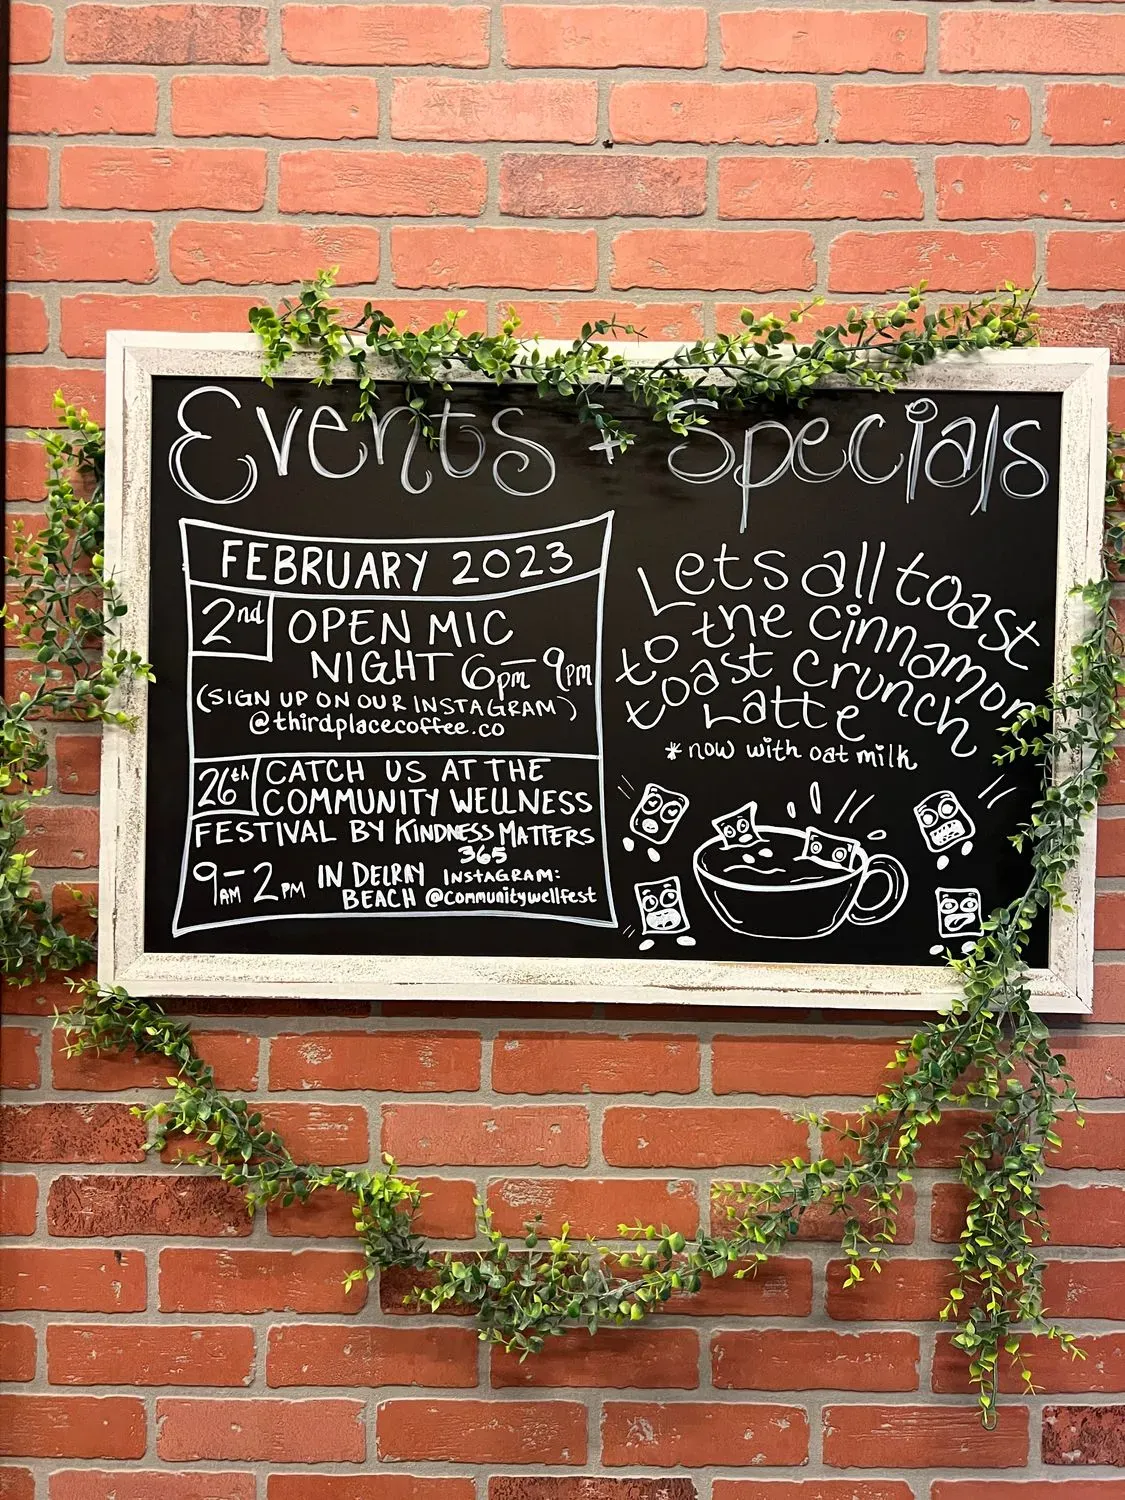 Events + Specials
FEBRUARY 2023
2nd OPEN MIC
NIGHT 6pm-9pm
(SIGN UP ON OUR INSTAGRAM)
@thirdplacecoffee.co
26th CATCH US AT THE
COMMUNITY WELLNESS
FESTIVAL BY KINDNESS MATTERS
365
9AM-2PM IN DELRAY BEACH
INSTAGRAM:
@communitywellfest
Lets all toast
to the cinnamon
toast crunch
Latte
*now with oat milk